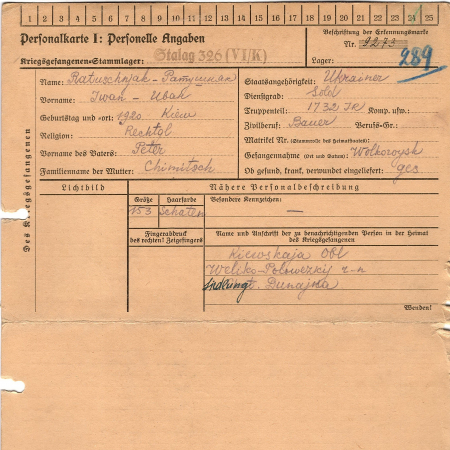 1 2 3 4 5 6 7 8 9 10 11 12 13 14 15 16 17 18 19 20 21 22 23 24 25
Personalkarte I: Personelle Angaben
Beschriftung der Erkennungsmarke
Nr. 9273
Kriegsgefangenen-Stammlager: Stalag 326 (VI/K)
Lager:
289
Des Kriegsgefangenen
Name: Ratuschnjak -
Vorname: Iwan - Иван
Geburtstag und -ort: 1920 Kiew
Religion: Rechtgl
Vorname des Vaters: Peter
Familienname der Mutter:
Staatsangehörigkeit: Ukrainer
Dienstgrad: Sold
Truppenteil: 1732 IR Komp. usw.:
Zivilberuf: Bauer Berufs-Gr.:
Matrikel Nr. (Stammrolle des Heimatstaates):
Gefangennahme (Ort und Datum): Wolkowysk
Ob gesund, krank, verwundet eingeliefert: ges
Lichtbild
Nähere Personalbeschreibung
Größe
153
Haarfarbe
Besondere Kennzeichen:
—
Fingerabdruck
des rechten! Zeigefingers
Name und Anschrift der zu benachrichtigenden Person in der Heimat
des Kriegsgefangenen
Kiewskaja Obl
Weliko-Polowezkij r-n
Dunajka
Wenden!